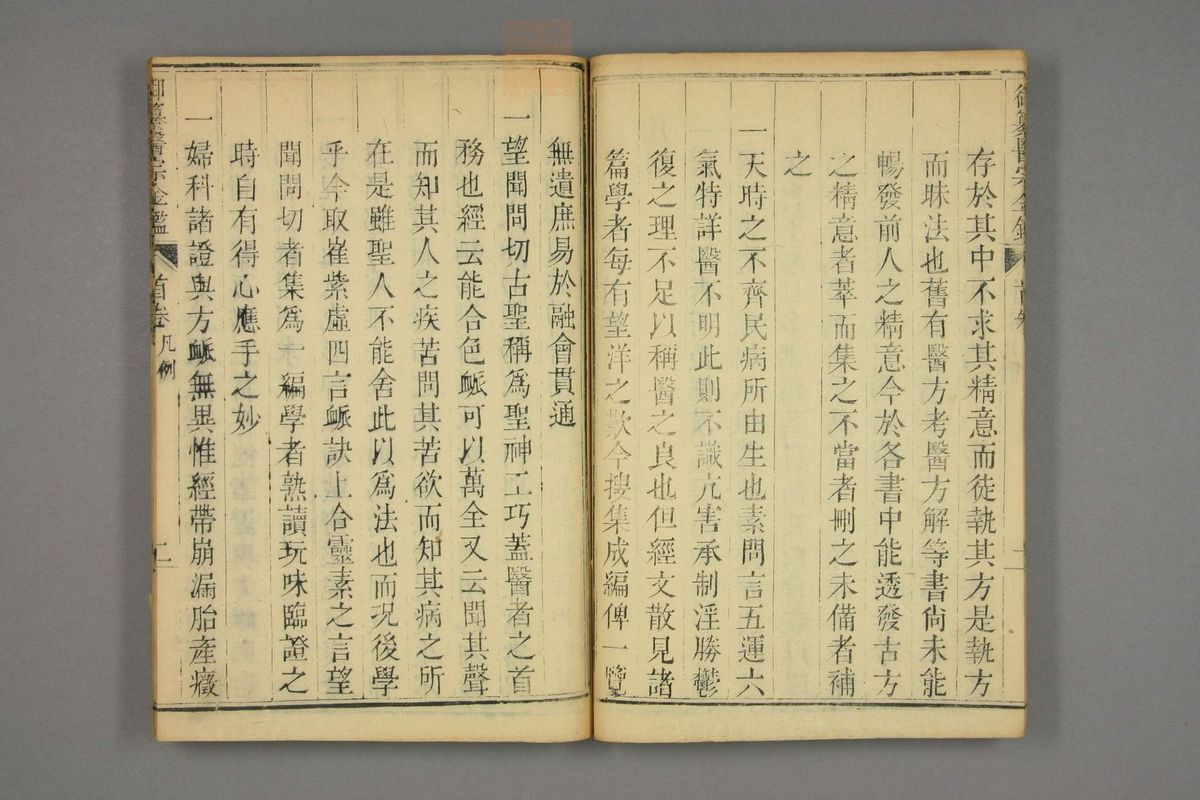 存於其中不求其精意而徒執其方是執方
而昧法也舊有醫方考醫方解等書尙未能
暢發前人之精意今於各書中能透發古方
之精意者萃而集之不當者刪之未備者補
之
一天時之不齊民病所由生也素問言五運六
氣特詳醫不明此則不識亢害承制淫勝鬱
復之理不足以稱醫之良也但經文散見諸
篇學者每有望洋之歎今搜集成編俾一覽
無遺庶易於融會貫通
一望聞問切古聖稱爲聖神工巧蓋醫者之首
務也經云能合色脈可以萬全又云聞其聲
而知其人之疾苦問其苦欲而知其病之所
在是雖聖人不能舍此以爲法也而况後學
乎今取崔紫虛四言脈訣上合靈素之言望
聞問切者集爲一編學者熟讀玩味臨證之
時自有得心應手之妙
一婦科諸證與方脈無異惟經帶崩漏胎產癥
御纂醫宗金鑑
首卷 凡例
二